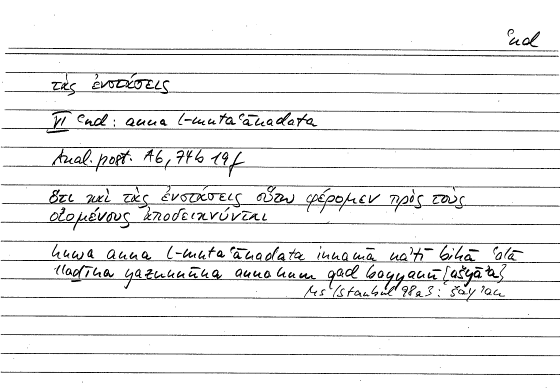 ʿnd
τὰς ἐνστάσεις
VI ʿnd: anna l-mutaʿānadata
Anal. post. A6, 74b 19f
ὅτι καὶ τὰς ἐνστάσεις οὕτω φέρομεν πρὸς τοὺς
οἰομένους ἀποδεικνύναι
huwa anna l-mutaʿānadata innamā naʾtī bihā ʿalā
lladīna yazunnūna annahum qad bayyanū [ašyāʾa]
Ms Istanbul 98a3: šayʾan